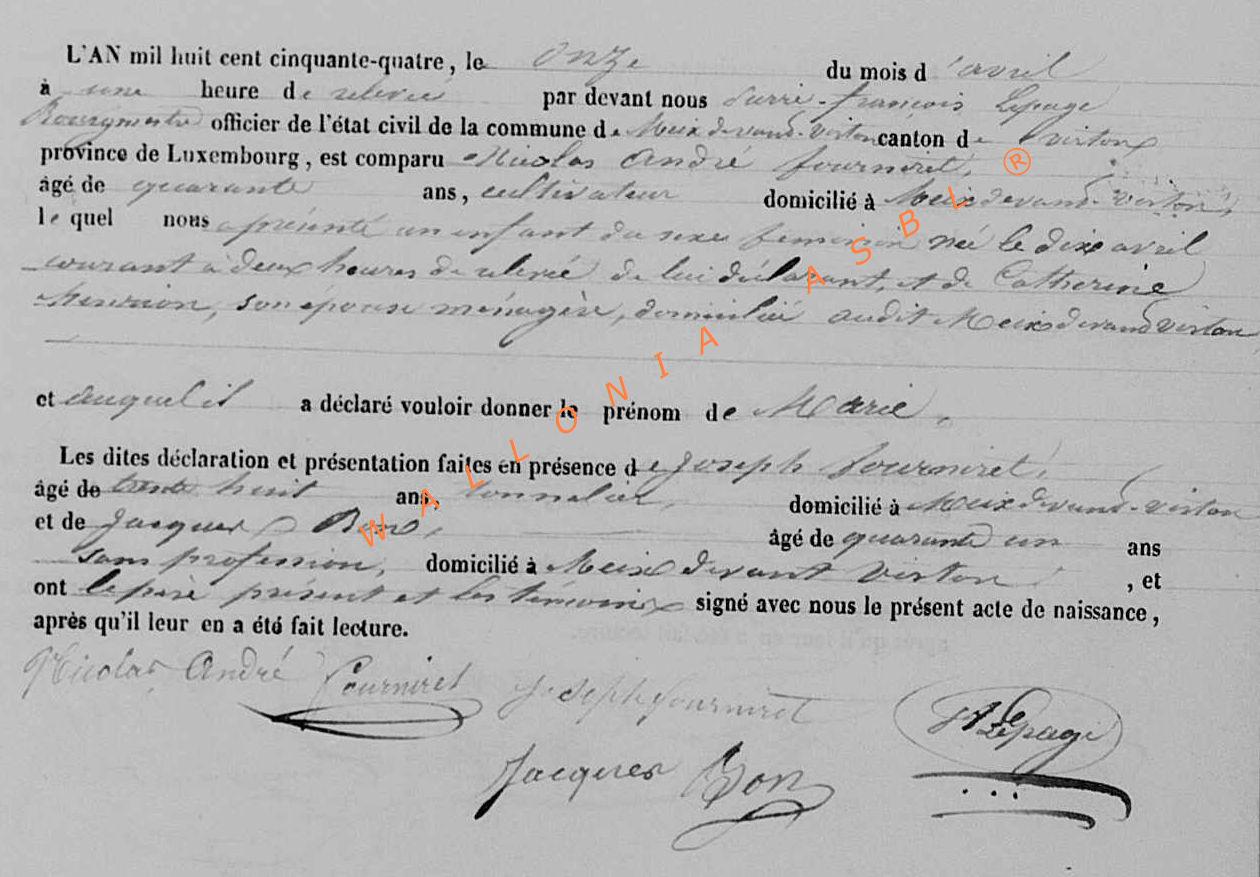 L'AN mil huit cent cinquante-quatre, le onze du mois d'avril
à une heure de relevée par devant nous François Lepage
Bourgmestre officier de l'état civil de la commune de Meix devant-virton canton de virton
province de Luxembourg, est comparu Nicolas André fourniret,
âgé de quarante ans, cultivateur domicilié à Meix devant-Virton,
le quel nous a présenté un enfant du sexe feminin né le dix avril
courant à deux heures de relevée de lui déclarant, et de Catherine
son épouse ménagère, domicilié audit Meix devand virton
et auquel il a déclaré vouloir donner le prénom de Marie,
Les dites déclaration et présentation faites en présence de Joseph fourniret,
âgé de trente huit ans, tonnelier, domicilié à Meix devand-virton
et de Jacques Bon, âgé de quarante un ans
sans profession, domicilié à Meix devant virton, et
ont le père présent et les témoins signé avec nous le présent acte de naissance,
après qu'il leur en a été fait lecture.
Nicolas André fourniret Joseph fourniret Lepage
Jacques Bon
WALLONIA ASBL ®